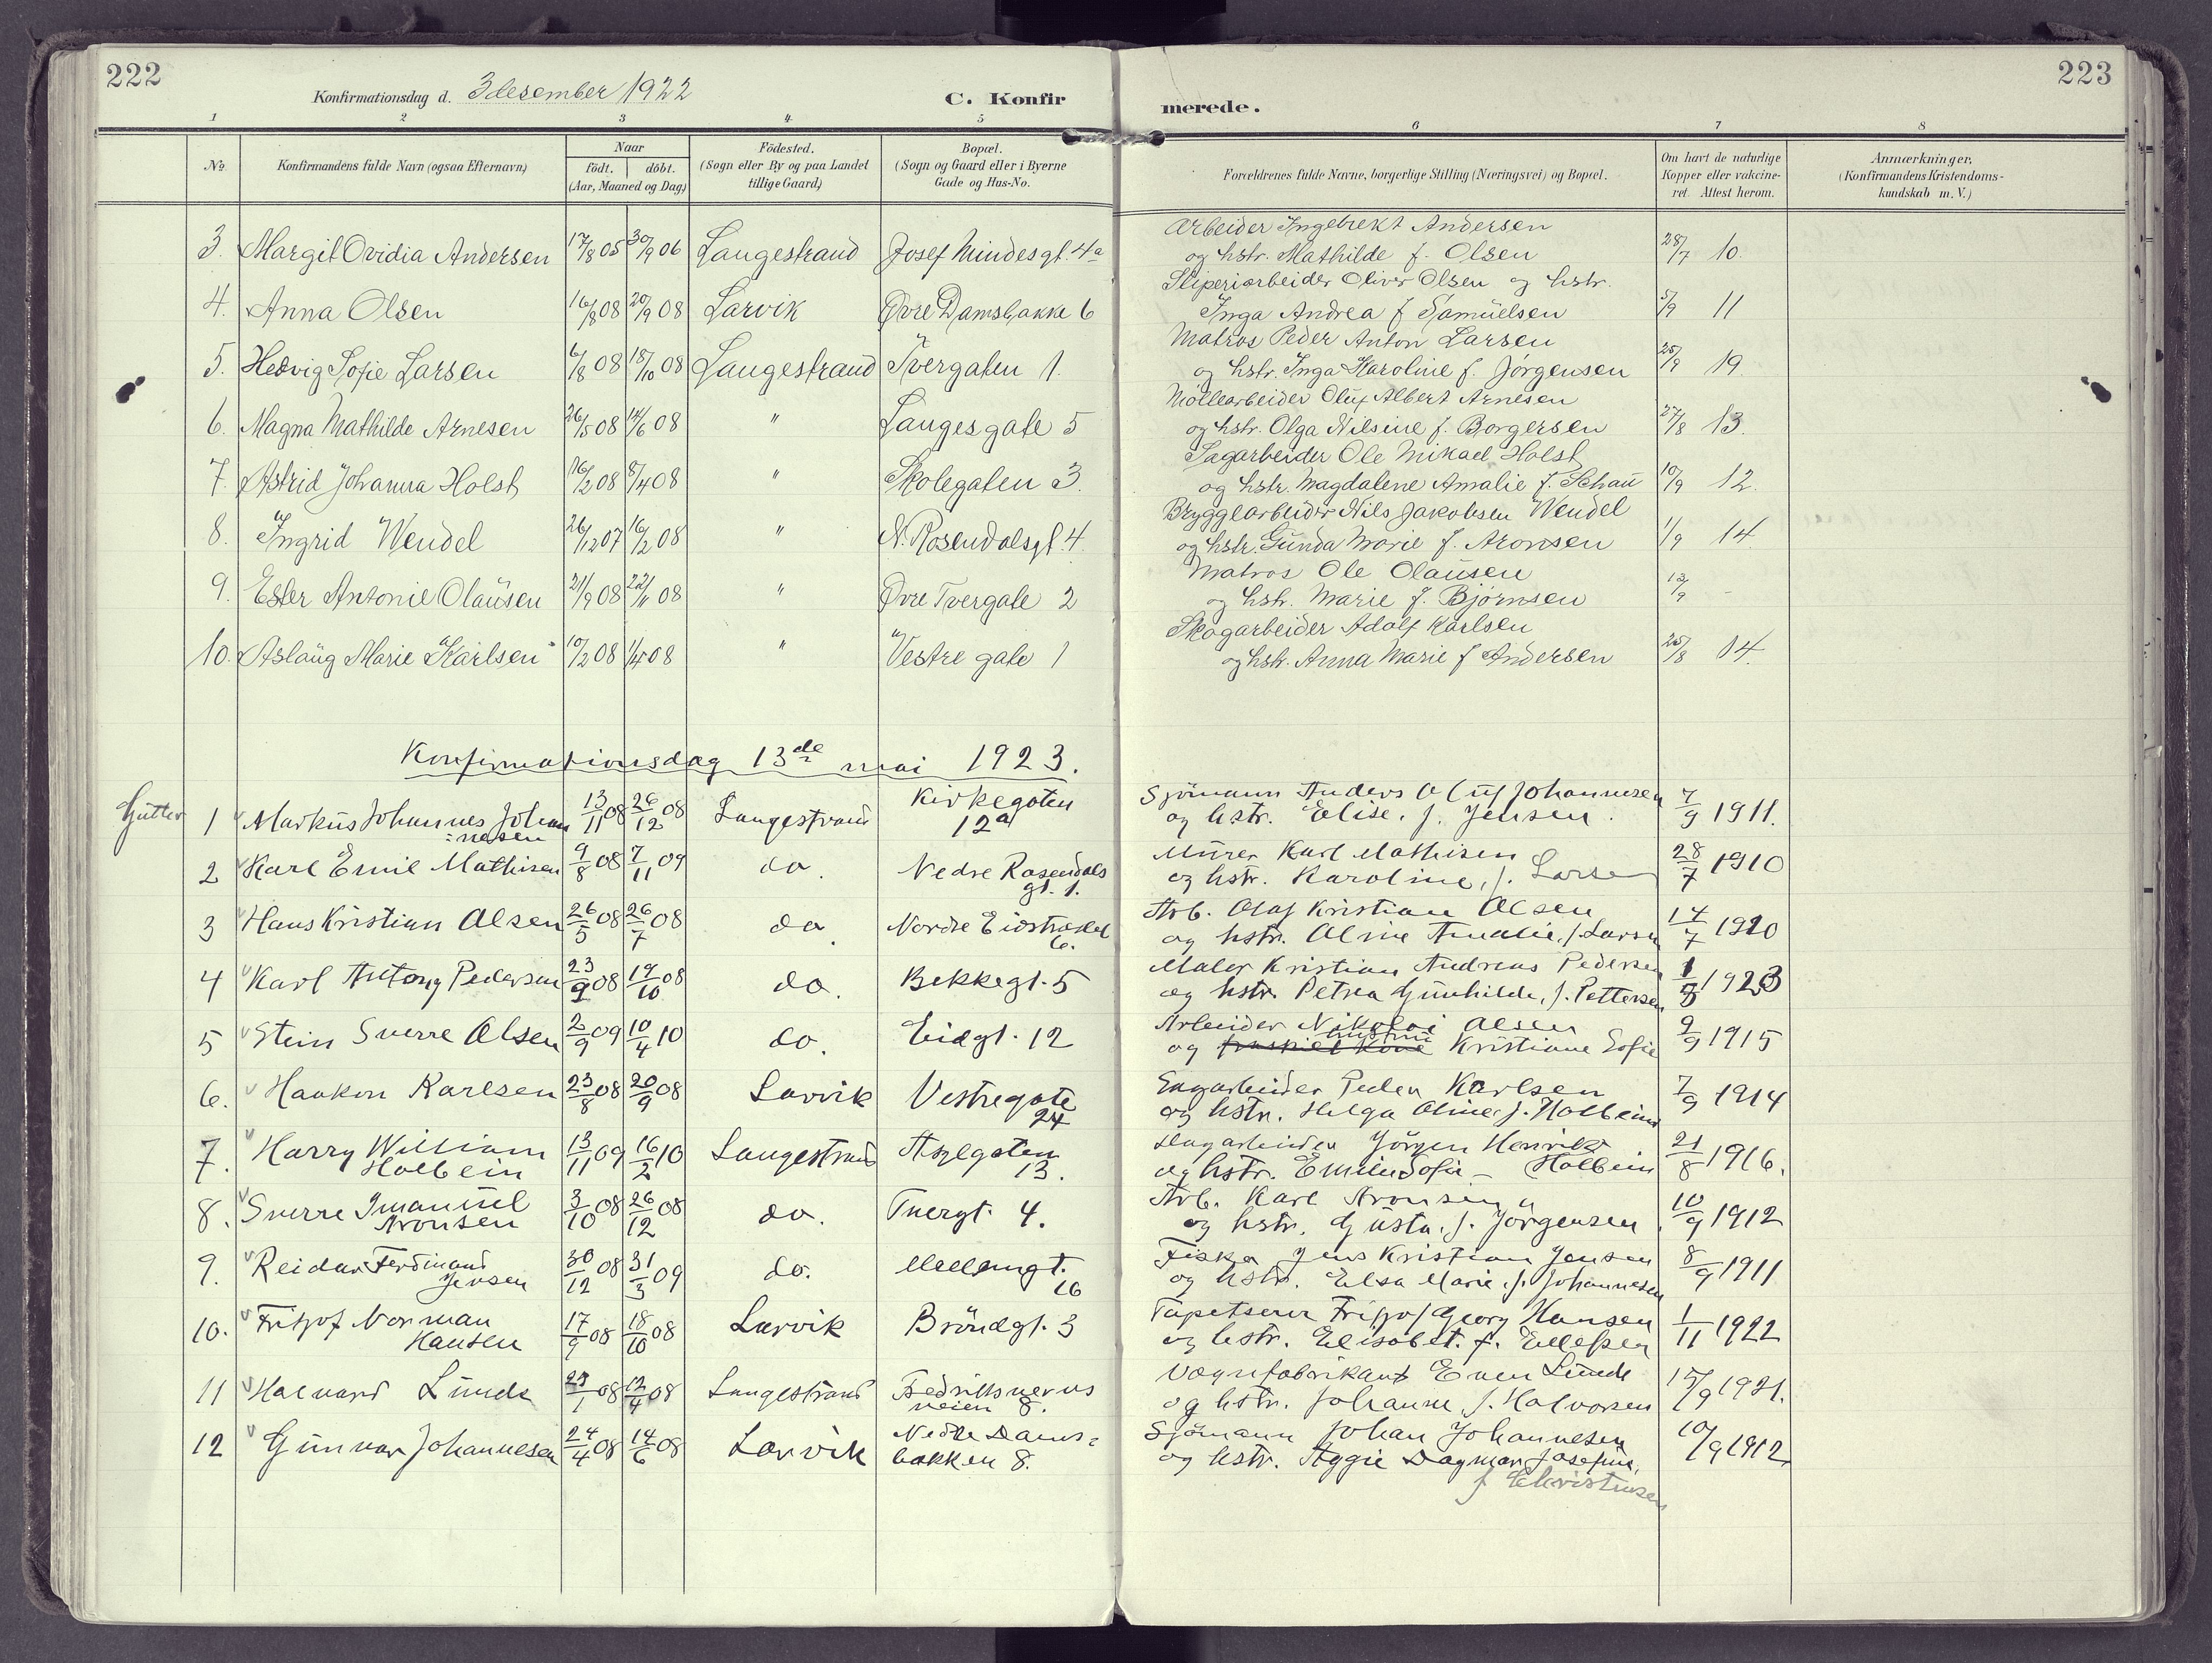 222
Konfirmationsdag d. 3 desember 1922
C. Konfir
merede.
223
1 2 3 4 5 6 7 8
No.
Konfirmandens fulde Navn (ogsaa Efternavn)
Naar
födt. döbt.
(Aar, Maaned og Dag)
Födested.
(Sogn eller By og paa Landet
tillige Gaard)
Bopæl.
(Sogn og Gaard eller i Byerne
Gade og Hus-No.
Forældrenes fulde Navne, borgerlige Stilling (Næringsvei) og Bopæl.
Om havt de naturlige
Kopper eller vakcine-
ret. Attest herom.
Anmærkninger.
(Konfirmandens Kristendoms-
kundskab m. V.)
3. Margit Ovidia Andersen 17/8 05 30/9 06 Langestrand Josef Mindesgt. 4a
Arbeider Ingebrekt Andersen
og hstr. Mathilde f. Olsen 28/7 10.
4. Anna Olsen 16/8 08 20/9 08 Larvik Øvre Damsbakke 6
Sliperiarbeider Oliver Olsen og hstr.
Inga Andrea f Samuelsen 5/9 11
5. Hedvig Sofie Larsen 6/8 08 18/10 08 Langestrand Tvergaten 1.
Matros Peder Anton Larsen
og hstr. Inga Karoline f. Jørgensen 25/9 19
6. Magna Mathilde Arnesen 26/5 08 14/6 08 " Langesgate 5
Möllearbeider Oluf Albert Arnesen
og hstr. Olga Nilsine f. Borgersen 27/8 13.
7. Astrid Johanna Holst 16/2 08 8/4 08 " Skolegaten 3.
Sagarbeider Ole Mikael Holst
og hstr. Magdalene Amalie f. Schau 10/9 12.
8. Ingrid Wendel 26/12 07 16/2 08 " N. Rosendalsgt. 4.
Bryggearbeider Nils Jakobsen Wendel
og hstr. Gunda Marie f. Aronsen 1/9 14.
9. Ester Antonie Olausen 21/9 08 22/11 08 " Øvre Tvergate 2
Matros Ole Olausen
og hstr. Marie f. Bjørnsen 13/9 -
10. Aslaug Marie Karlsen 10/2 08 1/4 08 " Vestre gate 1
Skogarbeider Adolf Karlsen
og hstr. Anna Marie f Andersen 25/8 14.
Konfirmationsdag 13de mai 1923.
Gutter
1 Markus Johannes Johan
=nesen 13/11 08 26/12 08 Langestrand Kirkegaten
12a
Sjömann Anders Oluf Johannesen
og hstr. Elise, f. Jensen. 7/9 1911.
2 Karl Emil Mathisen 9/8 08 7/11 09 do. Nedre Rosendals
gt. 1.
Murer Karl Mathisen
og hstr. Karoline, f. Larsen 28/7 1910
3 Hans Kristian Olsen 26/5 08 26/7 08 do. Nordre Eidstrædet
6.
Arb. Olaf Kristian Olsen
og hstr. Oline Amalie, f. Larsen 14/7 1920
4 Karl Antony Pedersen 23/9 08 19/10 08 do. Bekkegt. 5
Maler Kristian Andreas Pedersen
og hstr. Petra Gunhilde, f. Pettersen 1923
5 Stein Sverre Olsen 2/9 09 10/4 10 do. Eidgt. 12
Arbeider Nikolai Olsen
hustru
og fraskilt kone Kristiane Sofie 9/9 1915
6. Haakon Karlsen 23/8 08 20/9 08 Larvik Vestregate
24
Sagarbeider Peder Karlsen
og hstr. Helga Oline, f. Holbein 7/9 1914
7. Harry William
Holbein 13/11 09 16/2 10 Langestrand Asylgaten
13.
Sagarbeider Jörgen Henrik
og hstr. Emilie Sofie - Holbein 21/8 1916.
8. Sverre Imanuel
Aronsen 3/10 08 26/12 08 do. Tvergt. 4.
Arb. Karl Aronsen
og hstr. Gusta. f. Jörgensen. 10/9 1912
9. Reidar Ferdinand
Jensen 30/12 08 31/3 09 do. Mellemgt.
16
Fisker Jens Kristian Jensen
og hstr. Elsa Marie, f. Johannesen 8/9 1911
10. Fritjof Norman
Hansen 17/9 08 18/10 08 Larvik Bröndgt. 3
Tapetserer Fritjof Georg Hansen
og hstr. Elisabet. f. Ellefsen 1/11 1922
11 Halvard Lunde 29/1 08 12/4 08 Langestrand Fredriksverns
veien 8.
Vognfabrikant Even Lunde
og hstr. Johanne, f. Halvorsen 15/9 1921.
12 Gunnar Johannesen 24/4 08 14/6 08 Larvik Nedre Dams=
bakken 8.
Sjömann Johan Johannesen
og hstr. Aggie Dagmar Josefine,
f Christensen 10/9 1912